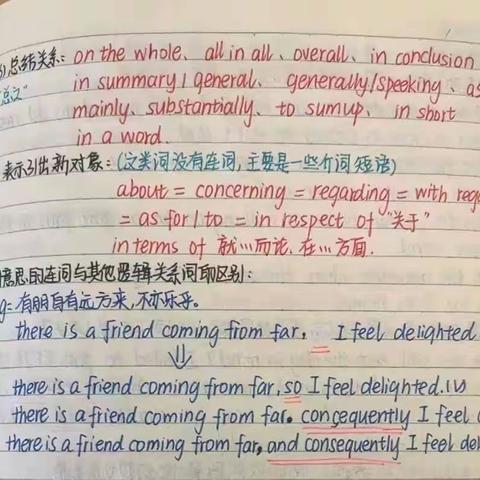 总结关系: on the whole、all in all、overall、in conclusion
"总之" in summary / general、generally/speeking、as
mainly、substantially、to sumup、in short
in a word.
表示引出新对象:(这类词没有连词,主要是一些介词短语)
about = concerning = regarding = with reg
= as for / to = in respect of "关于"
in terms of 就…而论. 在…方面.
意思的连词与其他逻辑关系词的区别:
g: 有朋自有远方来,不亦乐乎。
there is a friend coming from far. I feel delighted.
there is a friend coming from far, so I feel delighted.(√)
there is a friend coming from far. consequently I feel
there is a friend coming from far, and consequently I feel del